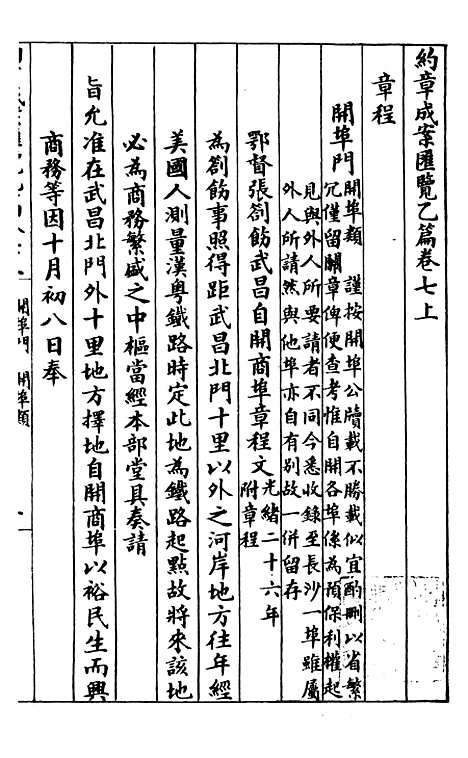 約章成案匯覽乙篇卷七上
章程
開埠門
開埠類　謹按開埠公牘載不勝載似宜酌刪以省繁
冗僅留關章俾便查考惟自開各埠係為預保利權起
見與外人所要請者不同今悉收錄至長沙一埠雖屬
外人所請然與他埠亦自有別故一併留存
鄂督張劄飭武昌自開商埠章程文
光緒二十六年
附章程
為劄飭事照得距武昌北門十里以外之河岸地方往年經
美國人測量漢粵鐵路時定此地為鐵路起點故將來該地
必為商務繁盛之中樞當經本部堂具奏請
旨允准在武昌北門外十里地方擇地自開商埠以裕民生而興
商務等因十月初八日奉
開埠門　開埠類